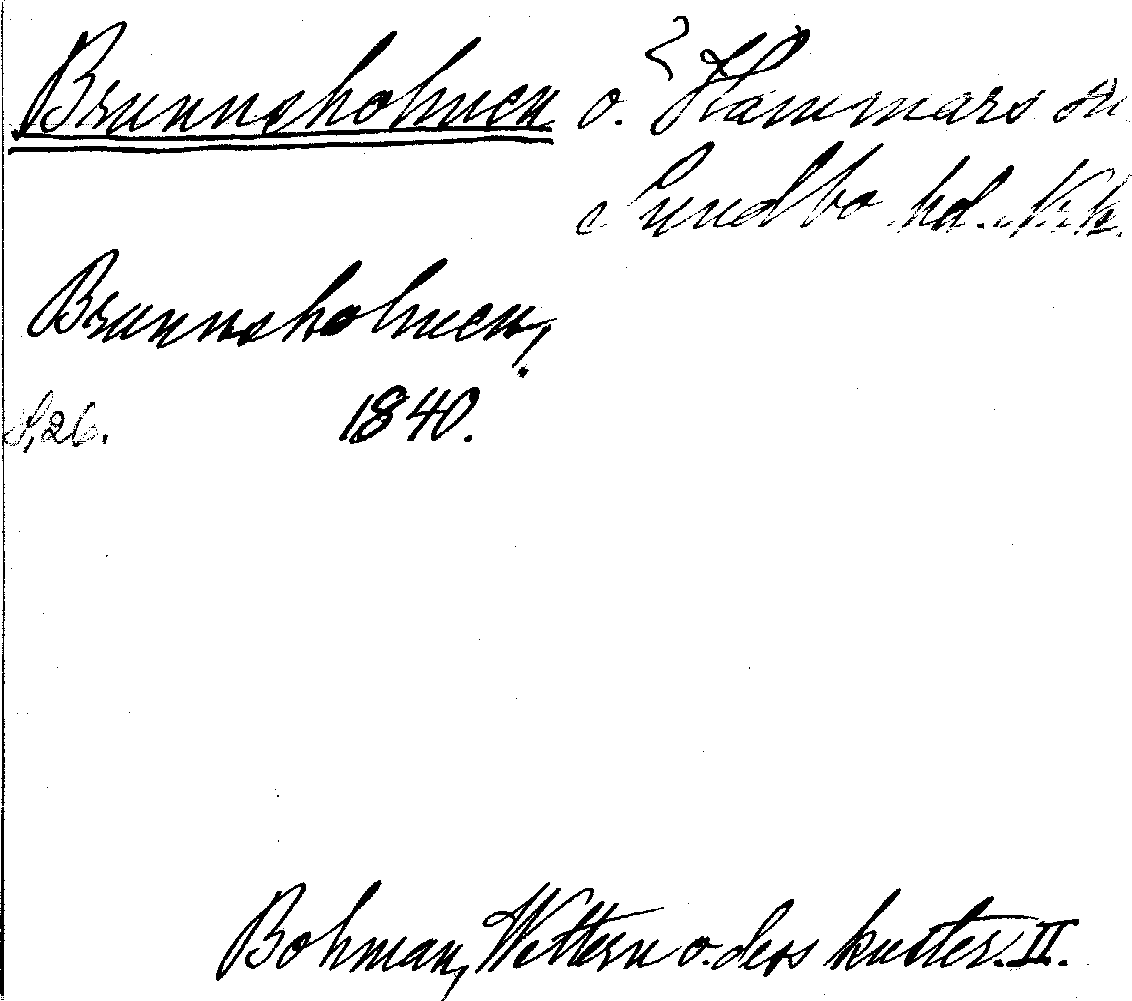 Brunnsholmen ö. Hammars sn
Sundbo hd. Nrk.
Brunnsholmen,
S. 26. 1840.
Bohman, Wettern o. dess kuster. II.